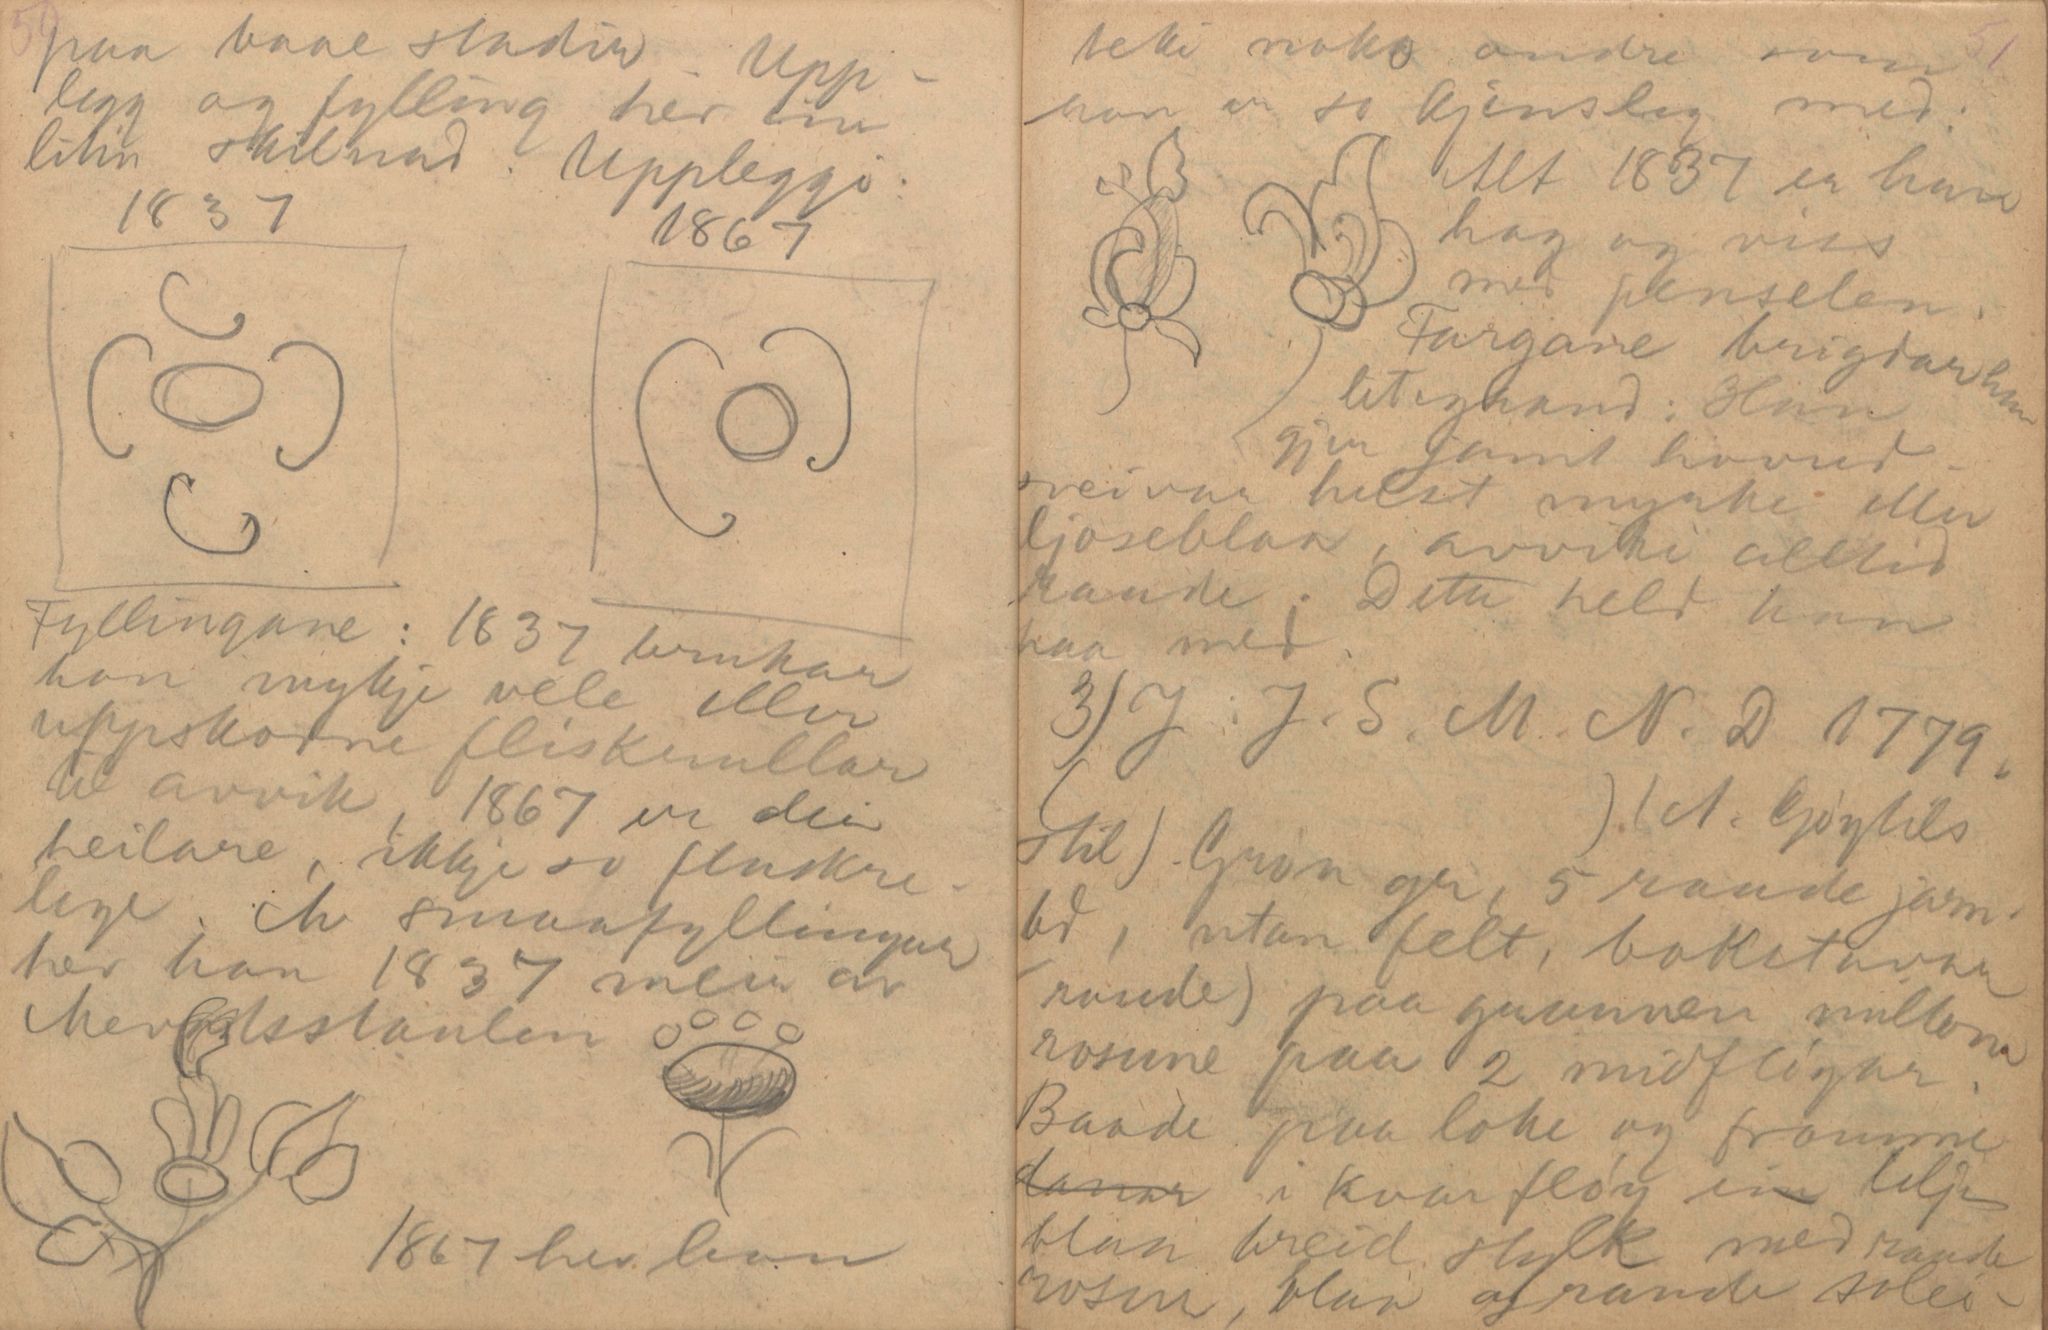 50
paa baae stadir. Upp-
legg og fylling her ein
litin skilnad. Uppleggi:
1837
1867
Fyllingane: 1837 brukar
han mykje vele eller
uppskorne fliskrullar
te avvik, 1867 er dei
heilare, ikkje so fluskre-
lege. Av smaafyllingar
hev han 1837 meir av
1867 hev han
51
teki noko andre som
han er so kjensleg med:
Alt 1837 er han
hag og viss
med penselen.
Fargane brigdar han
litegrand: Han
gjer jamt hovud-
sveivar helst myrke eller
ljoseblaa, avviki alltid
raude. Dette held han
paa med.
3) J. J. S. M. N. D 1779.
( ) (A.
stil). Grøn gr, 5 raude jarn-
bd, utan felt, bokstavar
(raude) paa grunnen millom
rosune paa 2 midfløgar.
Baade paa loke og framme
i kvar fløg ein lilje
blaa breid stylk med raude
rosur, blaa og raude solei-